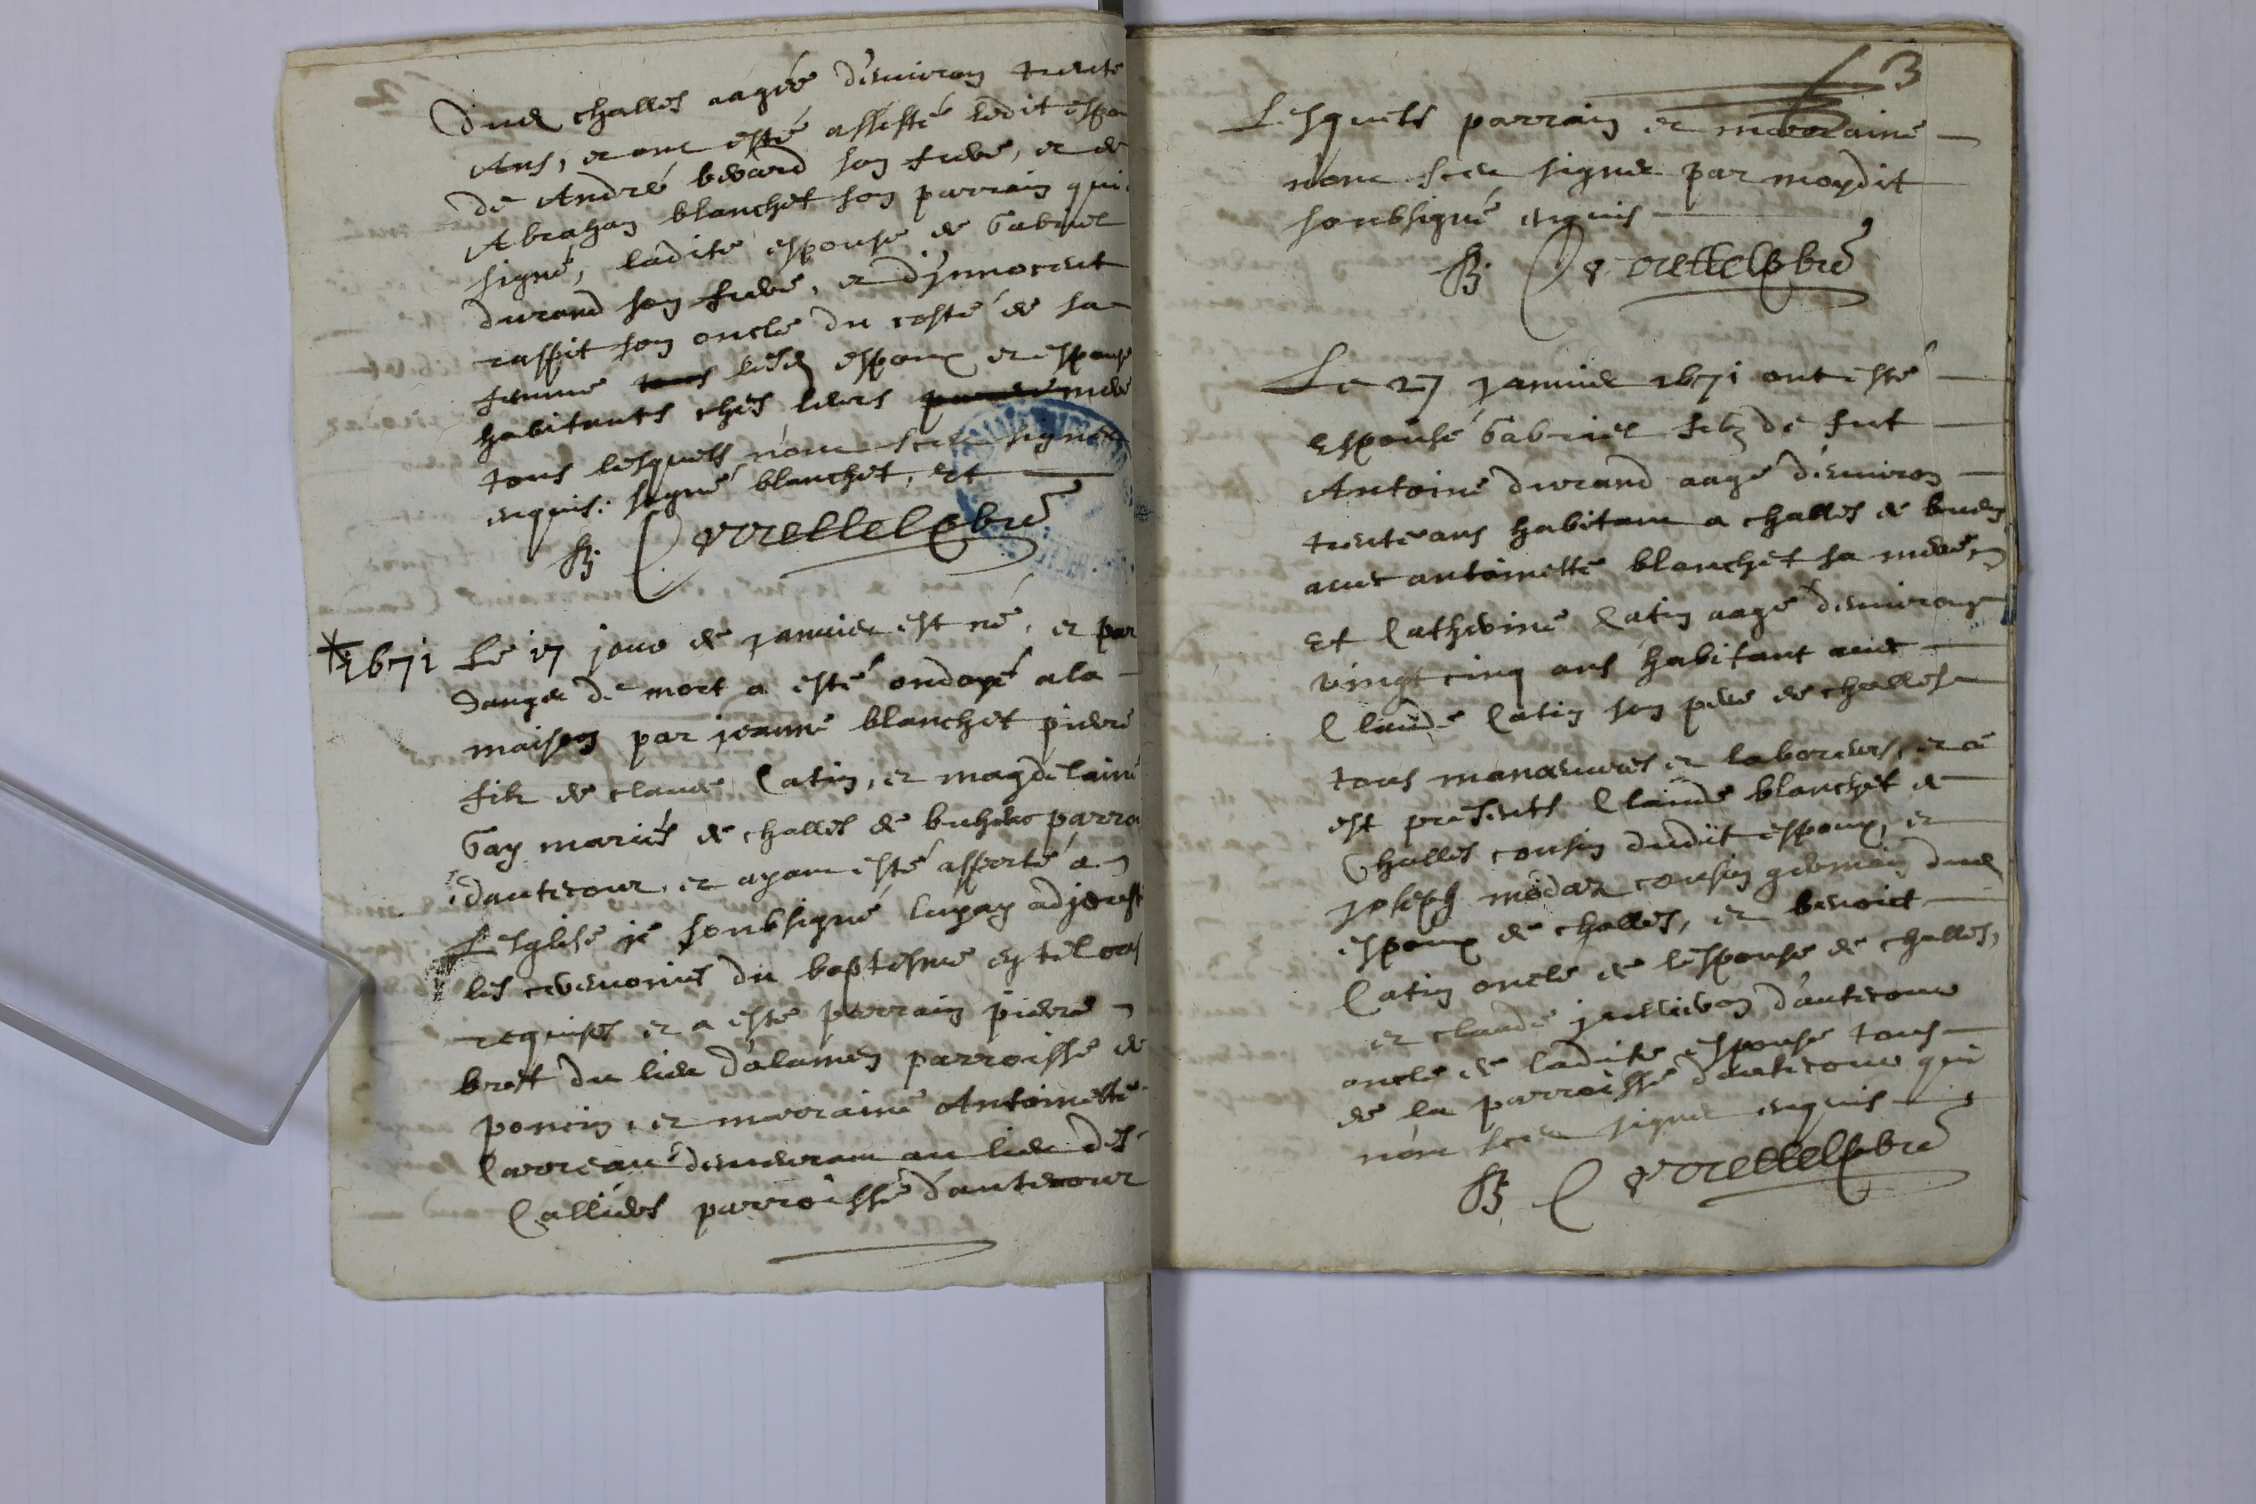 dud challes aagée d'environ trente
Ans, et ont esté assisté ledit espou
de André bevard son frere, et de
Abraham blanchet son parrain qui
signé, ladite espouse de Gabriel
durand son frere, et d'jnnocent
raffit son oncle du costé de sa
femme lesd espoux et espouse
habitants chés leurs mere
tous lesquels n'ont sceu signer
enquis. signé blanchet, et
1671 Le 17 jour de janvier est né, et par
danger de mort a esté ondoyé a la
maison par jeanne blanchet pierre
filz de claude Catin, et magdelaine
Gay mariés de challes de parro
d'autecour, et ayant esté apporté a
L'esglise je soubsigné luy ay adjousté
les ceremonies du baptesme en tel cas
requises et a esté parrain pierre
bret du lieu d'alamen parroisse de
poncin, et marraine Antoinette
Carreau demeurant au lieu des
Callides parroisse d'autecour
3
Lesquels parrain et marraine
n'ont sceu signer par moydit
soubsigné enquis
Le 27 janvier 1671 ont esté
espousé Gabriel filz de fut
Antoine durand aagé d'environ
trente ans habitant a challes de
avec antoinette blanchet sa mere,
et Catherine Catin aagé d'environ
vingt cinq ans habitant avec
Claude Catin son pere de challes
tous manoeuvres et laboreurs, et a
est presents Claude blanchet de
Challes cousin dudit espoux, et
joseph modaz cousin germain dud
espoux de challes, et benoict
Catin oncle de l'espouse de challes,
et claude d'autecour
oncle de ladite espouse tous
de la parroisse d'autecour qui
n'ont sceu signer enquis